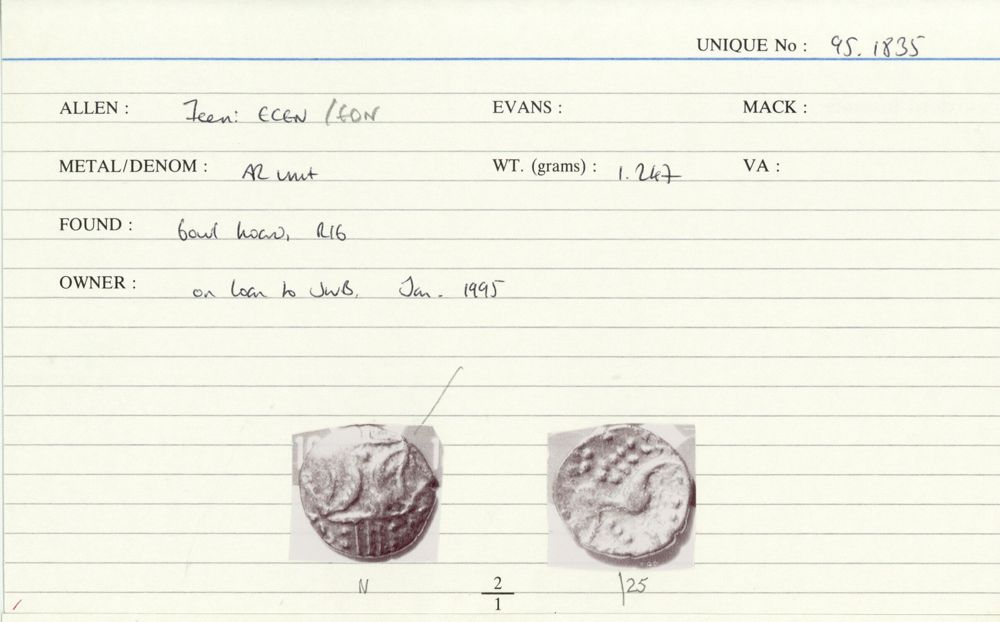 UNIQUE No : 95.1835
ALLEN : Icen: ECEN /EDN EVANS : MACK :
METAL/DENOM : AR unit WT. (grams) : 1.247 VA :
FOUND : bowl hoard, R16
OWNER : on loan to JWB, Jan. 1995
N 2/1 /25